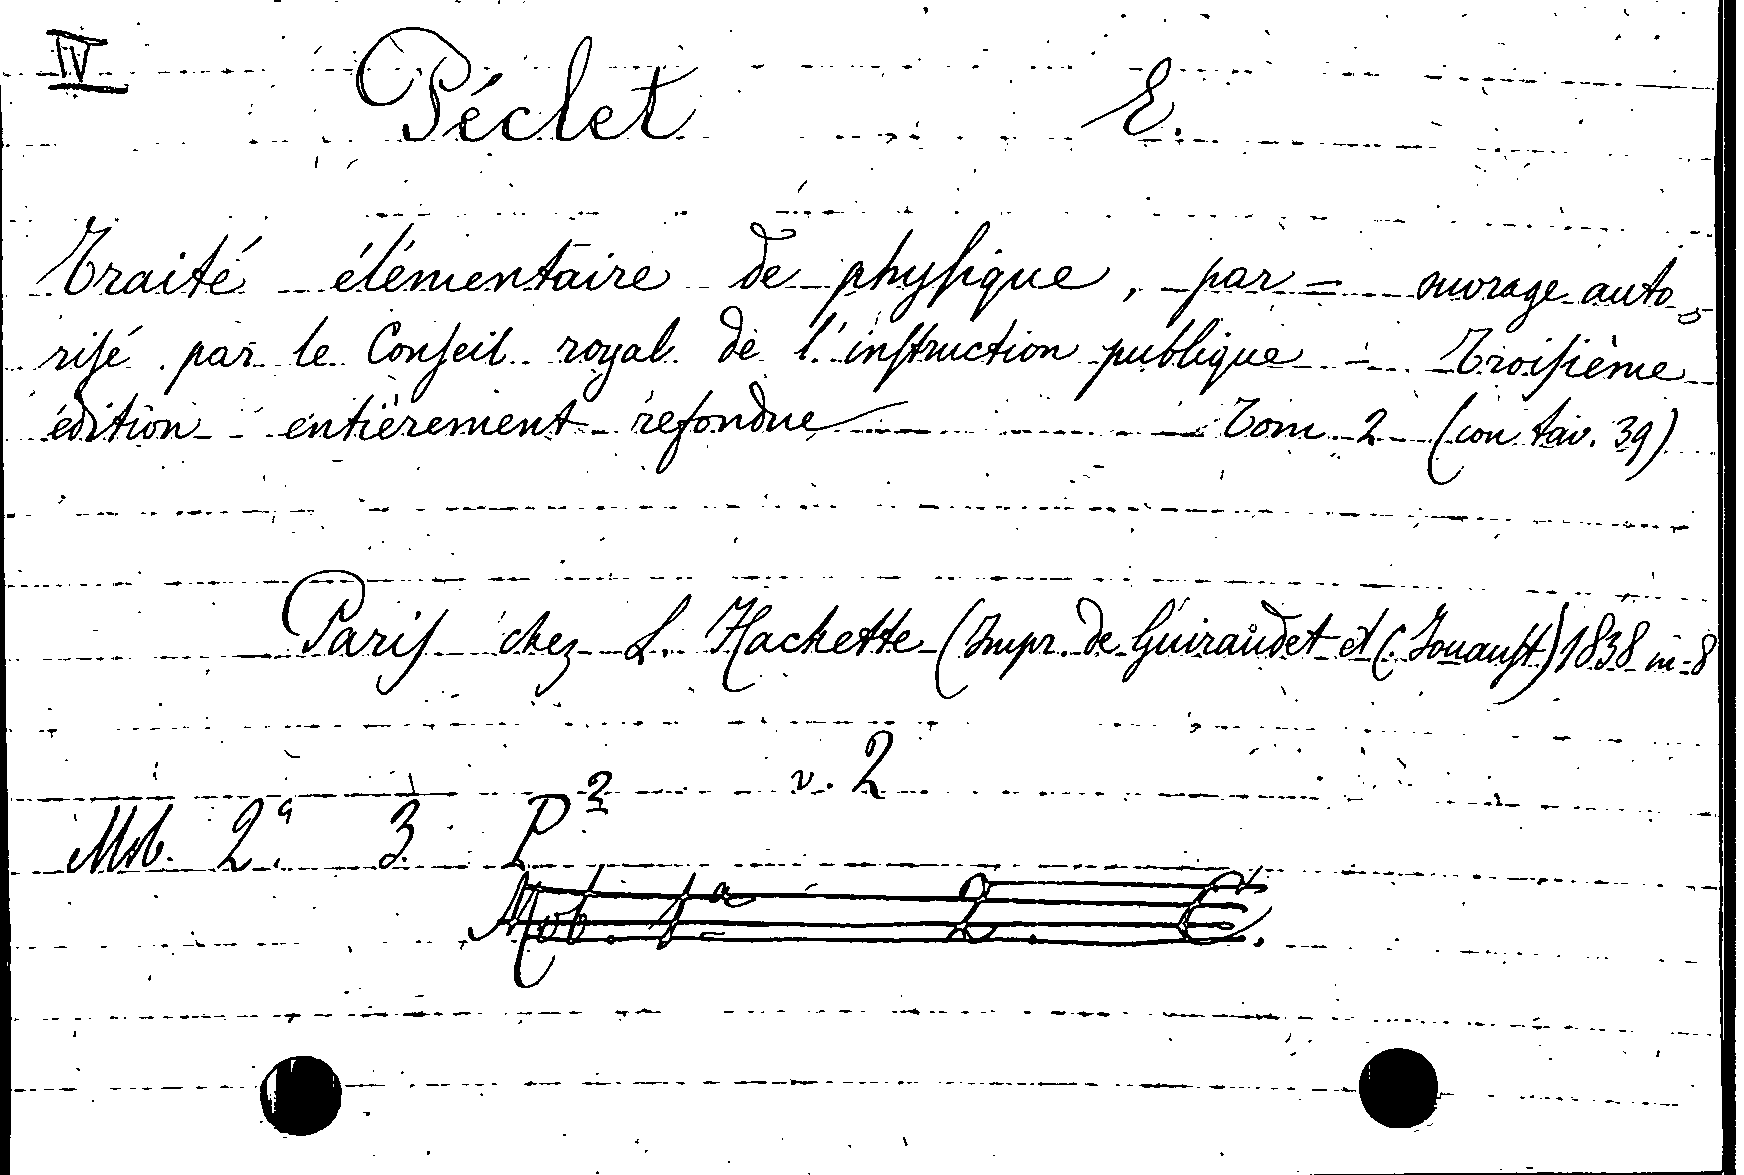 IV
Péclet E.
Traité élémentaire de physique, par = ouvrage auto
risé par le Conseil royal de l'instruction publique – Troisième
édition entièrement refondue — Tom. 2 (con tav. 39)
Paris chez L. Hachette (Impr. de Guiraudet et C. Jouaust) 1838 in-8
v. 2
Mob. 2ª. 3. P²
Mob. 1ª 2. E.